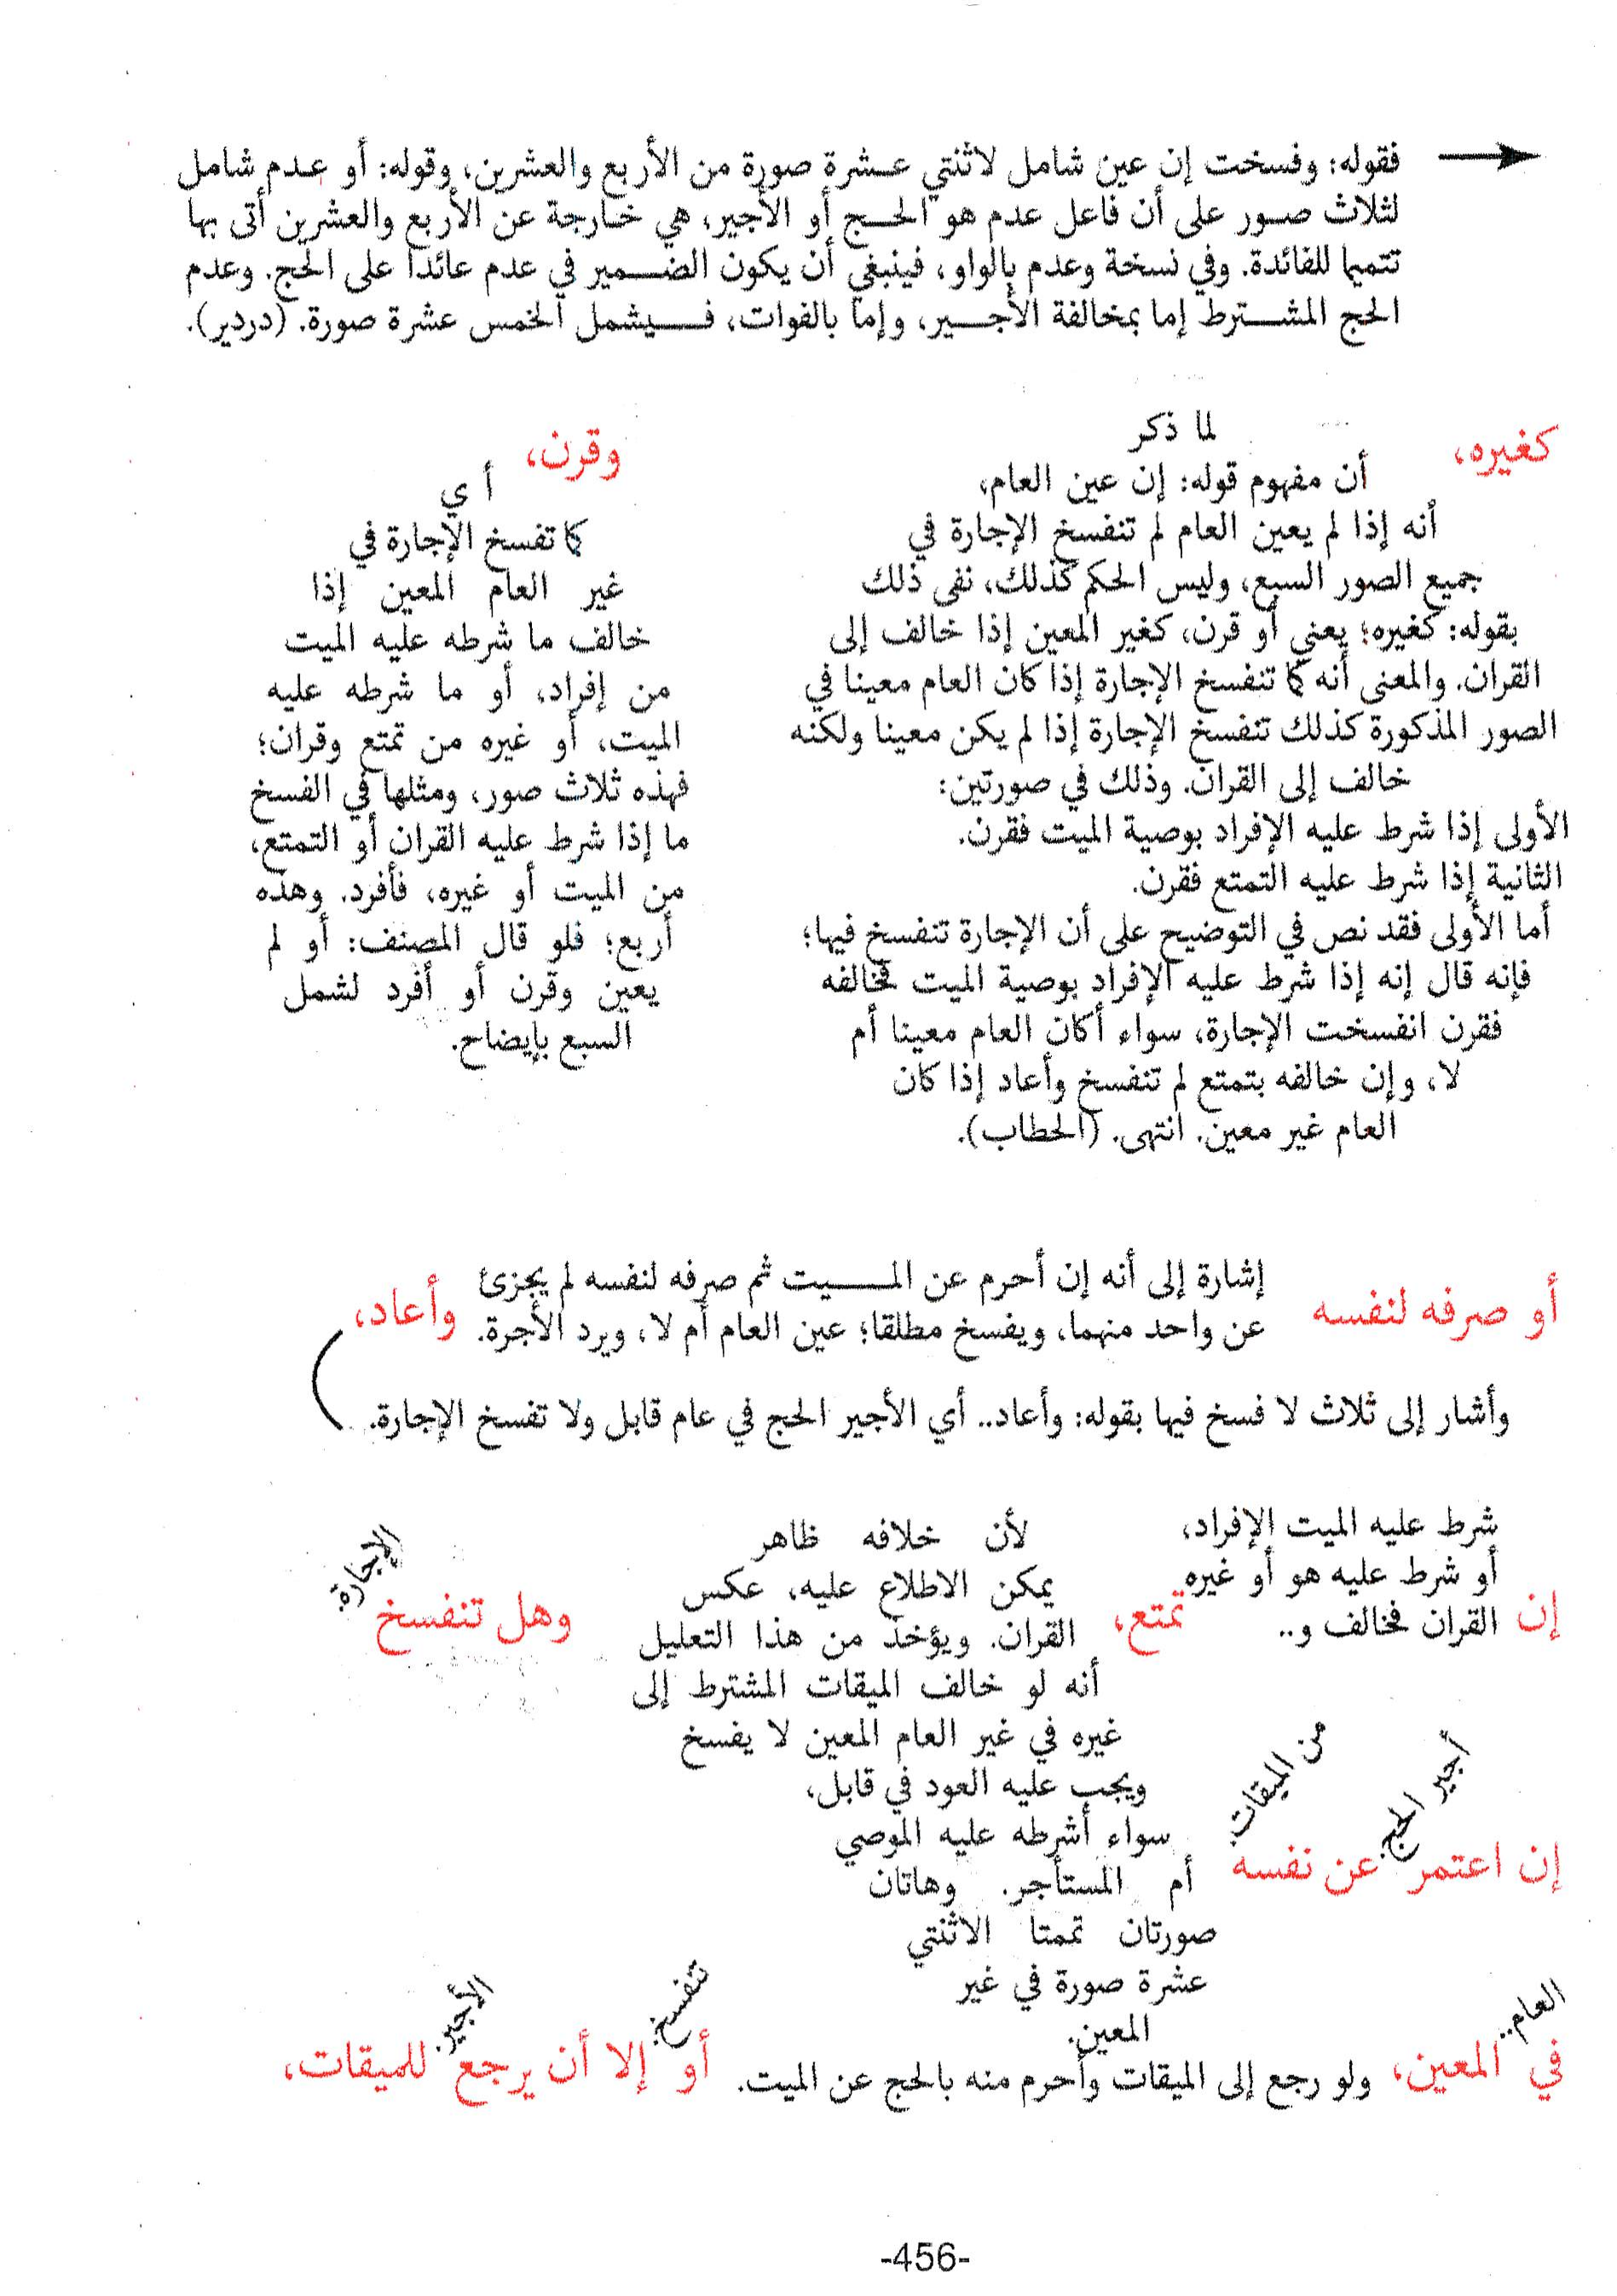 فقوله: وفسخت إن عين شامل لاثنتي عشرة صورة من الأربع والعشرين، وقوله: أو عدم شامل
لثلاث صور على أن فاعل عدم هو الحج أو الأجير، هي خارجة عن الأربع والعشرين أتى بها
تتميما للفائدة. وفي نسخة وعدم بالواو، فينبغي أن يكون الضمير في عدم عائدا على الحج. وعدم
الحج المشترط إما بمخالفة الأجير، وإما بالفوات، فيشمل الخمس عشرة صورة. (دردير).
كغيره،
لما ذكر
أن مفهوم قوله: إن عين العام،
أنه إذا لم يعين العام لم تنفسخ الإجارة في
جميع الصور السبع، وليس الحكم كذلك، نفى ذلك
بقوله: كغيره؛ يعني أو قرن، كغير المعين إذا خالف إلى
القران. والمعنى أنه كما تنفسخ الإجارة إذا كان العام معينا في
الصور المذكورة كذلك تنفسخ الإجارة إذا لم يكن معينا ولكنه
خالف إلى القران. وذلك في صورتين:
الأولى إذا شرط عليه الإفراد بوصية الميت فقرن.
الثانية إذا شرط عليه التمتع فقرن.
أما الأولى فقد نص في التوضيح على أن الإجارة تنفسخ فيها؛
فإنه قال إنه إذا شرط عليه الإفراد بوصية الميت فخالفه
فقرن انفسخت الإجارة، سواء أكان العام معينا أم
لا، وإن خالفه بتمتع لم تنفسخ وأعاد إذا كان
العام غير معين. انتهى. (الحطاب).
وقرن،
أي
كما تفسخ الإجارة في
غير العام المعين إذا
خالف ما شرطه عليه الميت
من إفراد، أو ما شرطه عليه
الميت، أو غيره من تمتع وقران؛
فهذه ثلاث صور، ومثلها في الفسخ
ما إذا شرط عليه القران أو التمتع،
من الميت أو غيره، فأفرد. وهذه
أربع؛ فلو قال المصنف: أو لم
يعين وقرن أو أفرد لشمل
السبع بإيضاح.
أو صرفه لنفسه
إشارة إلى أنه إن أحرم عن الميت ثم صرفه لنفسه لم يجزئ
عن واحد منهما، ويفسخ مطلقا؛ عين العام أم لا، ويرد الأجرة.
وأعاد،
وأشار إلى ثلاث لا فسخ فيها بقوله: وأعاد.. أي الأجير الحج في عام قابل ولا تفسخ الإجارة.
إن
شرط عليه الميت الإفراد،
أو شرط عليه هو أو غيره
القران فخالف و..
تمتع،
لأن خلافه ظاهر
يمكن الاطلاع عليه، عكس
القران. ويؤخذ من هذا التعليل
أنه لو خالف الميقات المشترط إلى
غيره في غير العام المعين لا يفسخ
ويجب عليه العود في قابل،
سواء أشرطه عليه الموصي
أم المستأجر. وهاتان
صورتان تمتا الاثنتي
عشرة صورة في غير
المعين.
وهل تنفسخ
الإجارة.
إن اعتمر
أجير الحج.
عن نفسه
من الميقات.
في المعين،
العام..
ولو رجع إلى الميقات وأحرم منه بالحج عن الميت.
أو
تنفسخ.
إلا أن يرجع
الأجير.
للميقات،
-456-